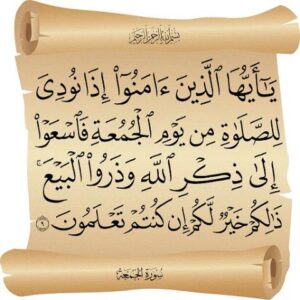 بسم الله الرحمن الرحيم
يَـٰٓأَيُّهَا ٱلَّذِينَ ءَامَنُوٓا۟ إِذَا نُودِىَ
لِلصَّلَوٰةِ مِن يَوْمِ ٱلْجُمُعَةِ فَٱسْعَوْا۟
إِلَىٰ ذِكْرِ ٱللَّهِ وَذَرُوا۟ ٱلْبَيْعَ ۚ
ذَٰلِكُمْ خَيْرٌ لَّكُمْ إِن كُنتُمْ تَعْلَمُونَ ٩
سُورَةُ الجُمُعَة